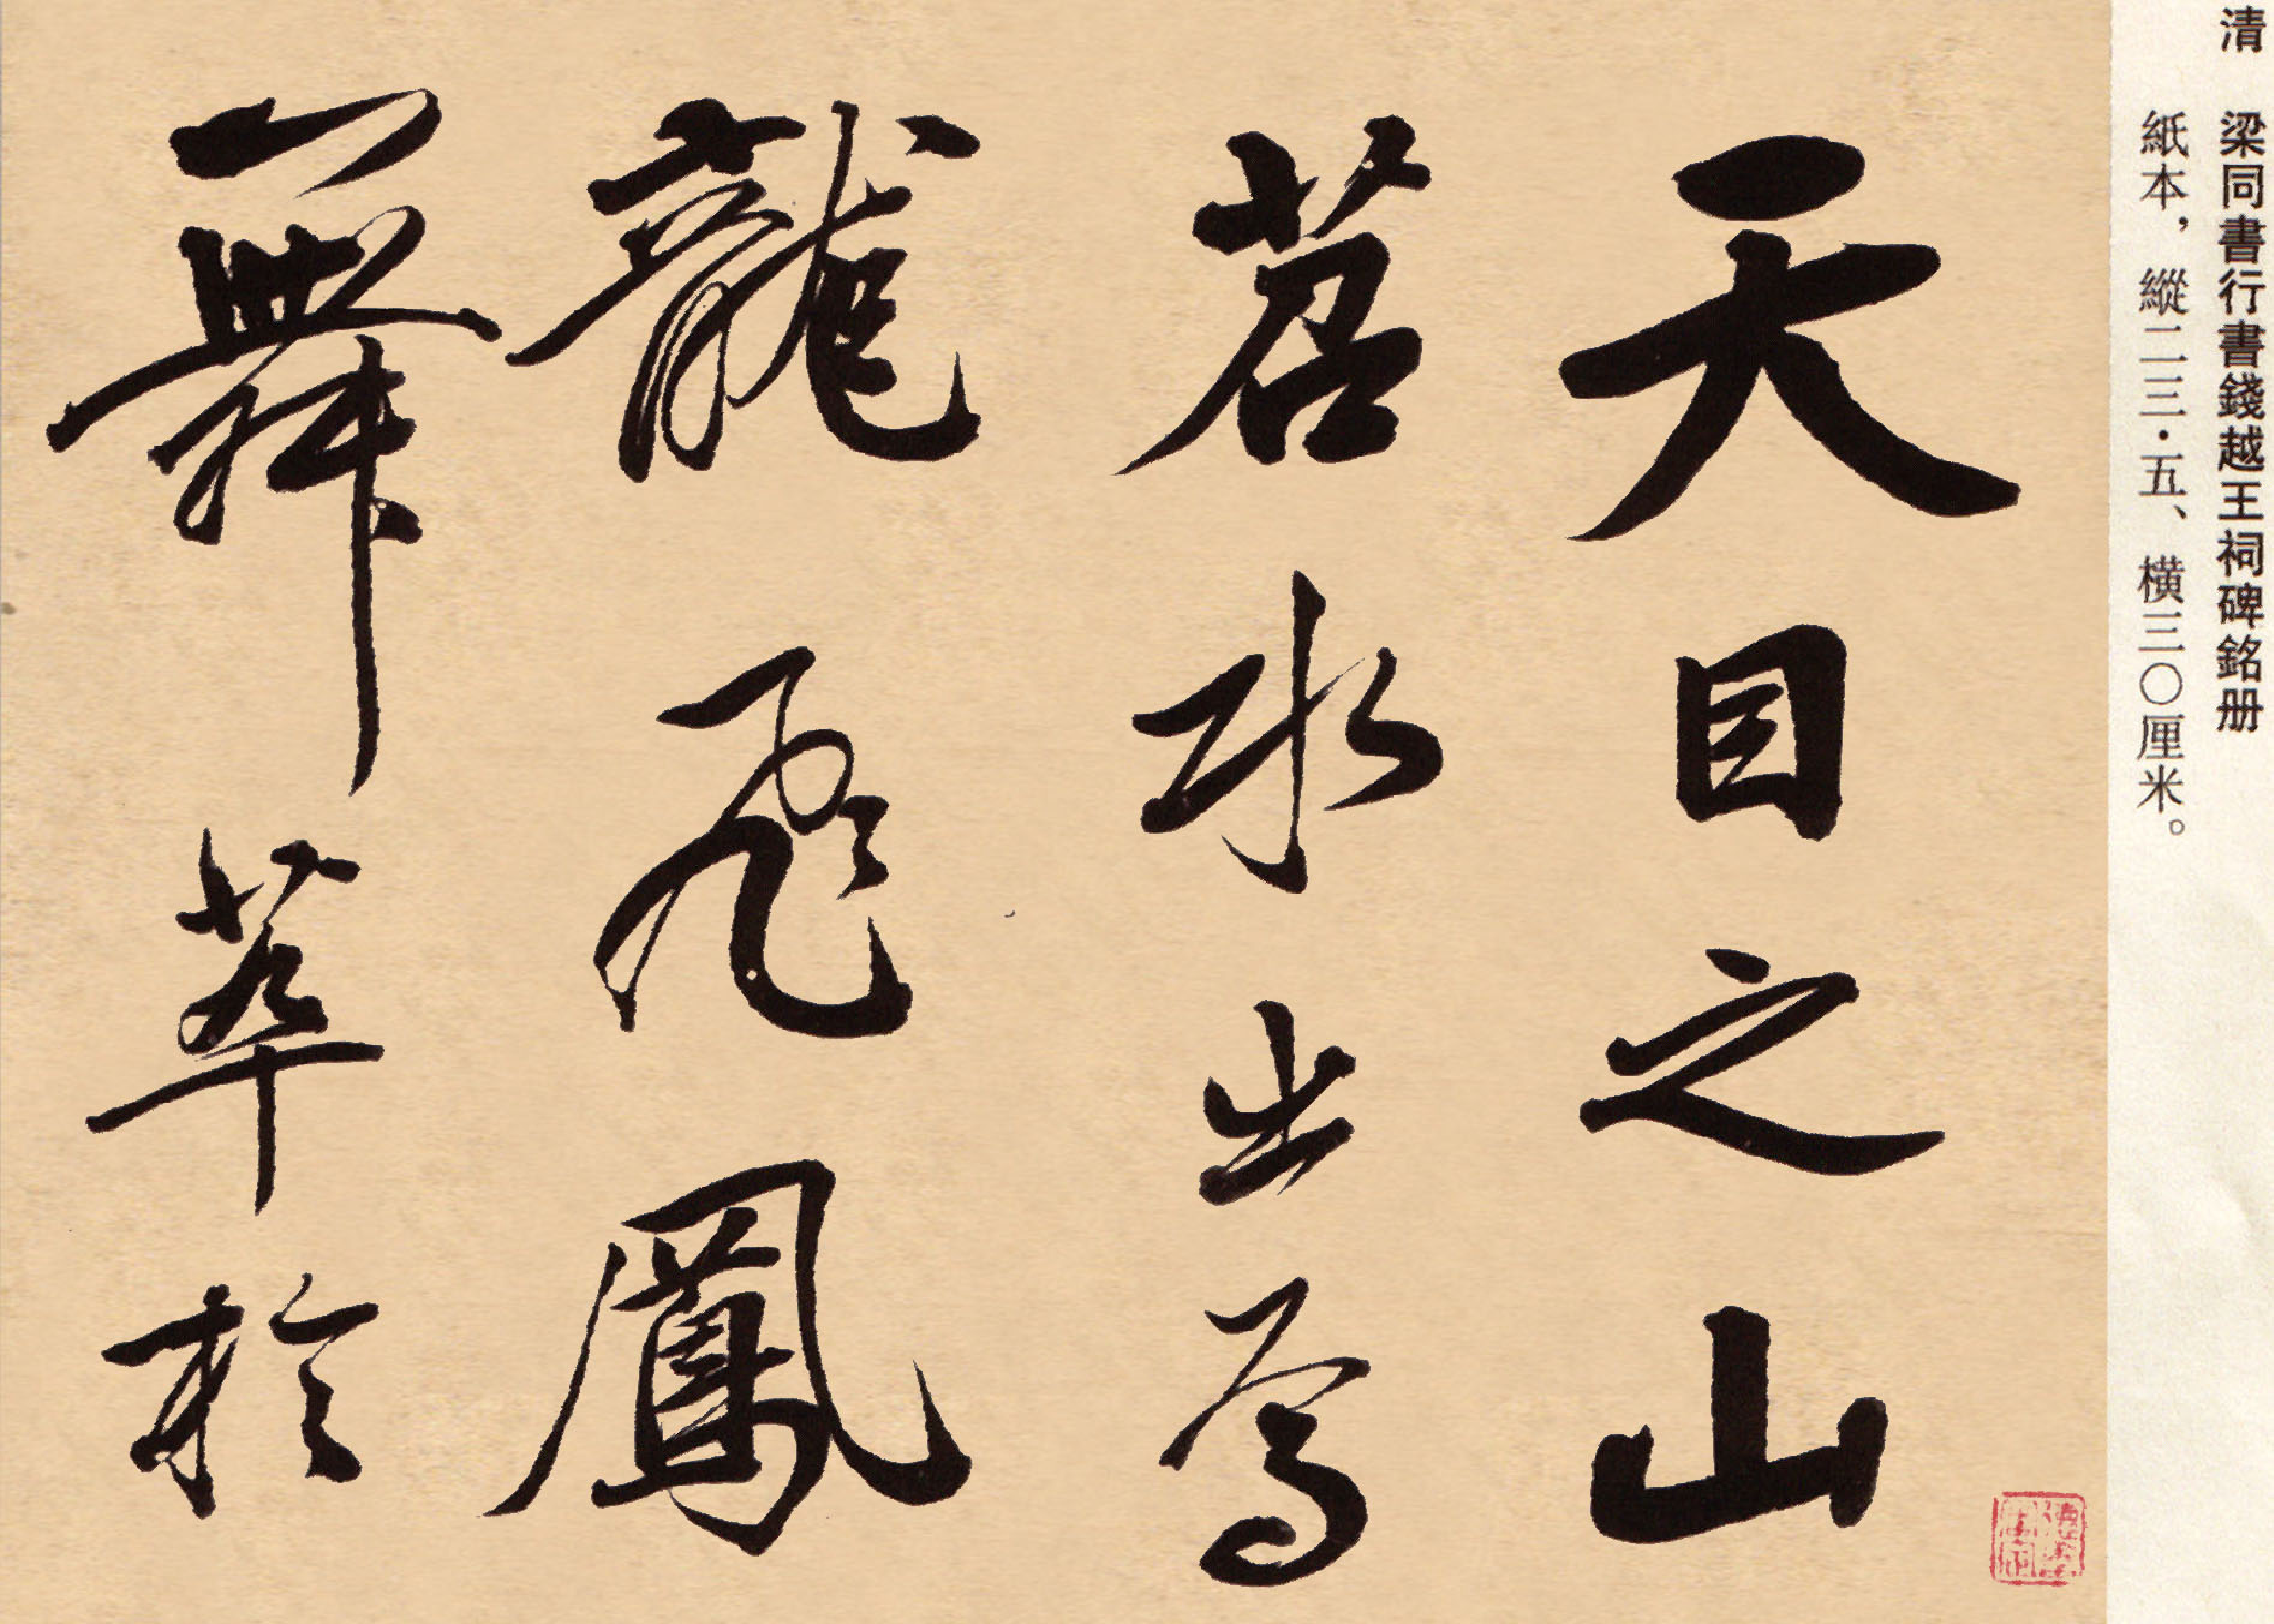 清　梁同書行書錢越王祠碑銘册
紙本，縱二三·五、橫三〇厘米。
天目之山
苕水出焉
龍飛鳳
舞萃於